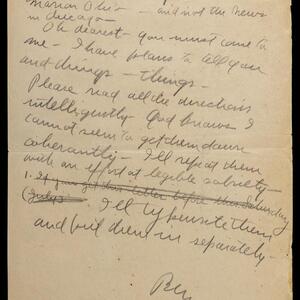 Marion Ohio — and not the News
in Chicago —
Oh dearest — you must come to
me — I have plans to tell you
and things — things —
Please read all the directions
intelligently God knows I
cannot seem to get them down
coherantly — I'll repeat them
with an effort at legible sobriety —
1. If you get this letter before Saturday
(July 3 I'll typewrite them
and put them in separately —
Ben